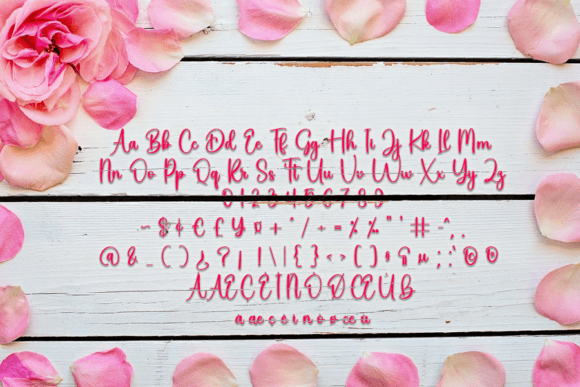 Aa Bb Cc Dd Ee Ff Gg Hh Ii Jj Kk Ll Mm
Nn Oo Pp Qq Rr Ss Tt Uu Vv Ww Xx Yy Zz
0 1 2 3 4 5 6 7 8 9
~ $ ¢ € £ ¥ ¤ + * / ÷ = % ‰ " ' # - ^ , .
@ & _ ( ) ¿ ? ¡ ! \ | { } < > [ ] § ¶ µ ; : ' © ®